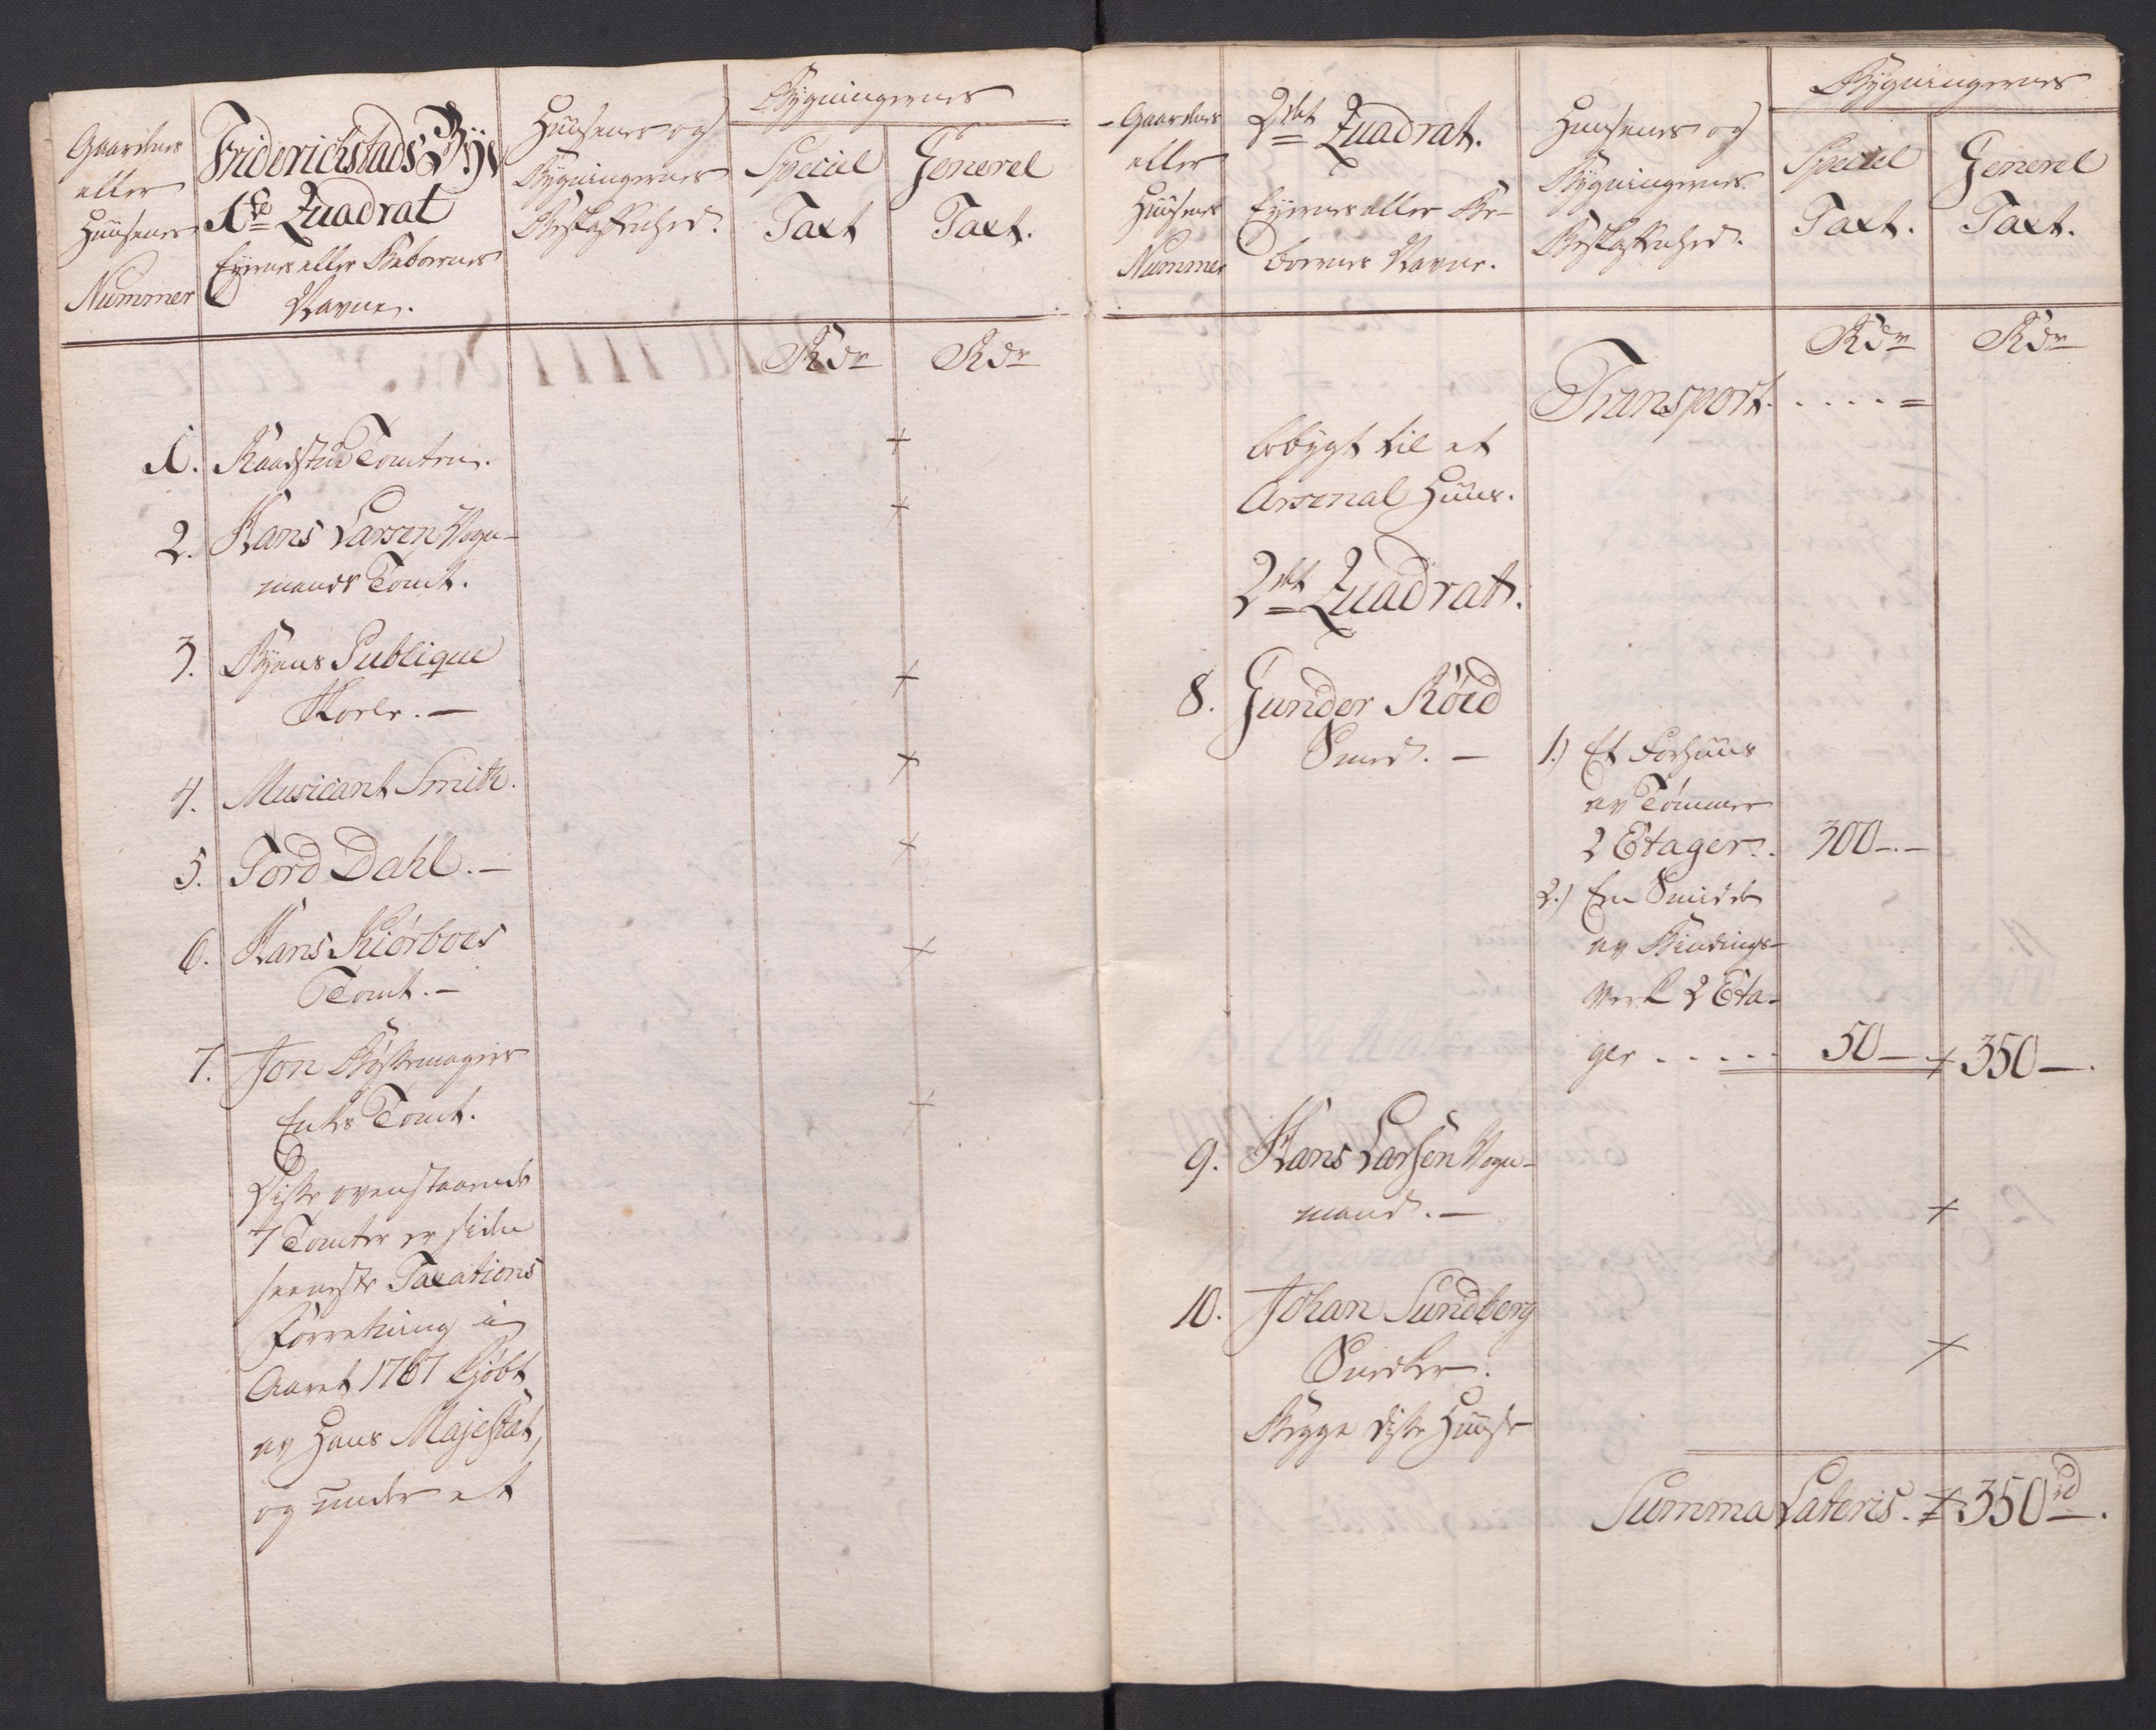 Gaardens
eller
Huusenes
Nummer
Friderichstads Bye
1te Quadrat
Eyernes eller Beboernes
Navne.
Huusenes og
Bygningernes
Beskaffenhed.
Bygningernes
Special
Taxt
Generel
Taxt.
Rdr
Rdr
1. Raadstue Tomten. +
2. Hans Larsen Vogn- +
mands Tomt.
3. Byens Publique +
Skole. —
4. Musicant Smith. +
5. Tord Dahl. — +
6. Hans Kiørboes +
Tomt. —
7. Jon Bøssemagers
Enkes Tomt. +
Disse ovenstaaende
7 Tomter er siden
seeneste Taxations
Forretning i
Aaret 1767 kjøbt
av Hans Majestæt,
og under et
Gaardens
eller
Huusenes
Nummer
2det Quadrat.
Eyernes eller Be-
boernes Navne.
Huusenes og
Bygningernes
Beskaffenhed.
Bygningernes
Special
Taxt.
Generel
Taxt.
Rdr
Rdr
Transport. . . . . =
bebygt til et
Arsenal Huus.
2det Quadrat.
8. Gunder Röed
Smed. — 1.) Et Forhuus
av Tömmer
2 Etager. . 300 — . —
2.) En Smidde
av Bindings-
Verk 2 Eta-
ger . . . . . 50 — + 350 — .
9. Hans Larsen Vogn-
mand. — +
10. Johan Sundberg
Snedker. +
Begge disse Huuse
Summa Lateris. + 350 rd.